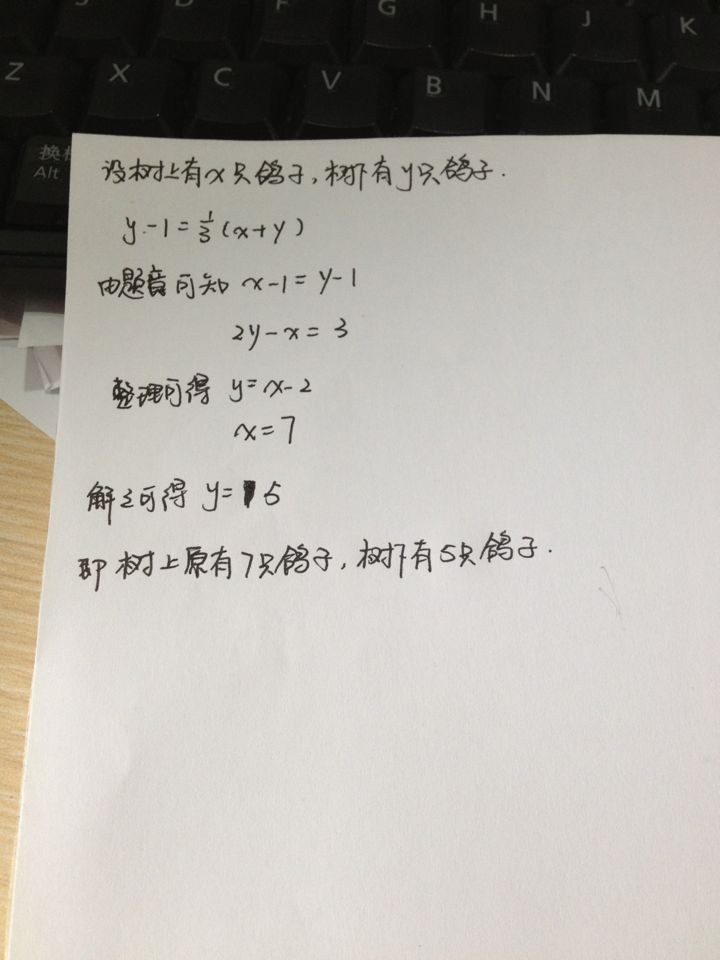 F G H J K
Z X C V B N M
Alt
设树上有x只鸽子,树下有y只鸽子.
y-1=⅓(x+y)
由题意可知 x-1=y-1
2y-x=3
整理可得 y=x-2
x=7
解之可得 y=5
即树上原有7只鸽子,树下有5只鸽子.